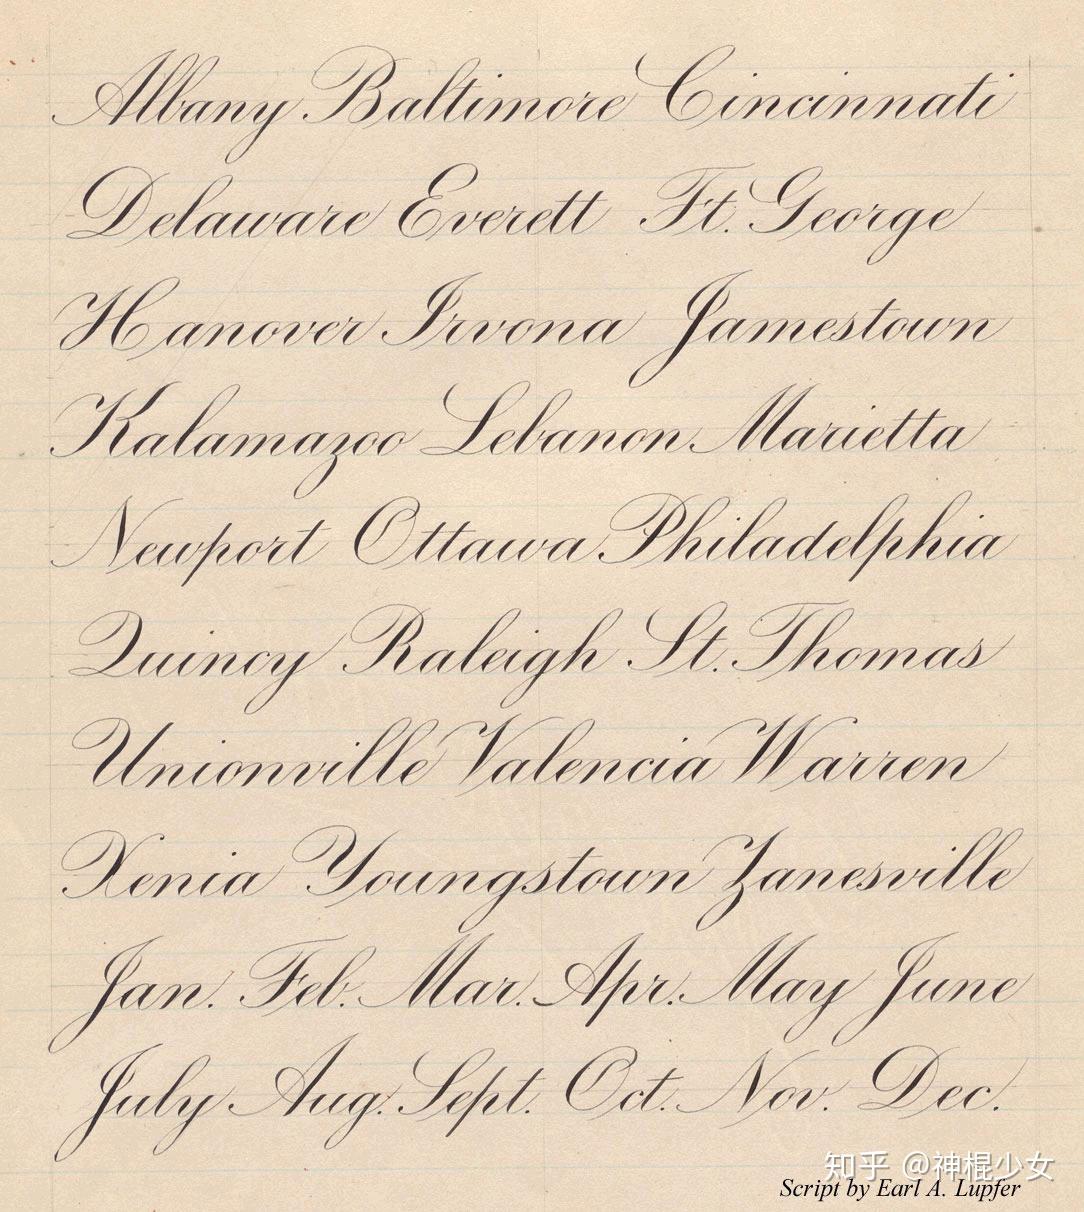 Albany Baltimore Cincinnati
Delaware Everett Ft. George
Hanover Irvona Jamestown
Kalamazoo Lebanon Marietta
Newport Ottawa Philadelphia
Quincy Raleigh St. Thomas
Unionville Valencia Warren
Xenia Youngstown Zanesville
Jan. Feb. Mar. Apr. May June
July Aug. Sept. Oct. Nov. Dec.
知乎 @神棍少女
Script by Earl A. Lupfer